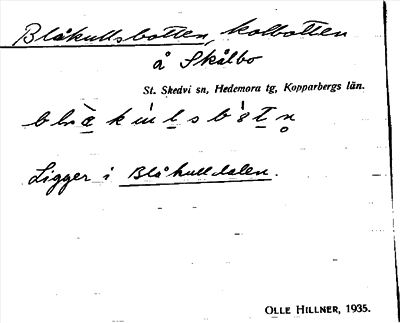 Blåkullsbotten, kolbotten
å Skålbo
St. Skedvi sn, Hedemora tg, Kopparbergs län.
Ligger i Blåkulldalen.
OLLE HILLNER, 1935.